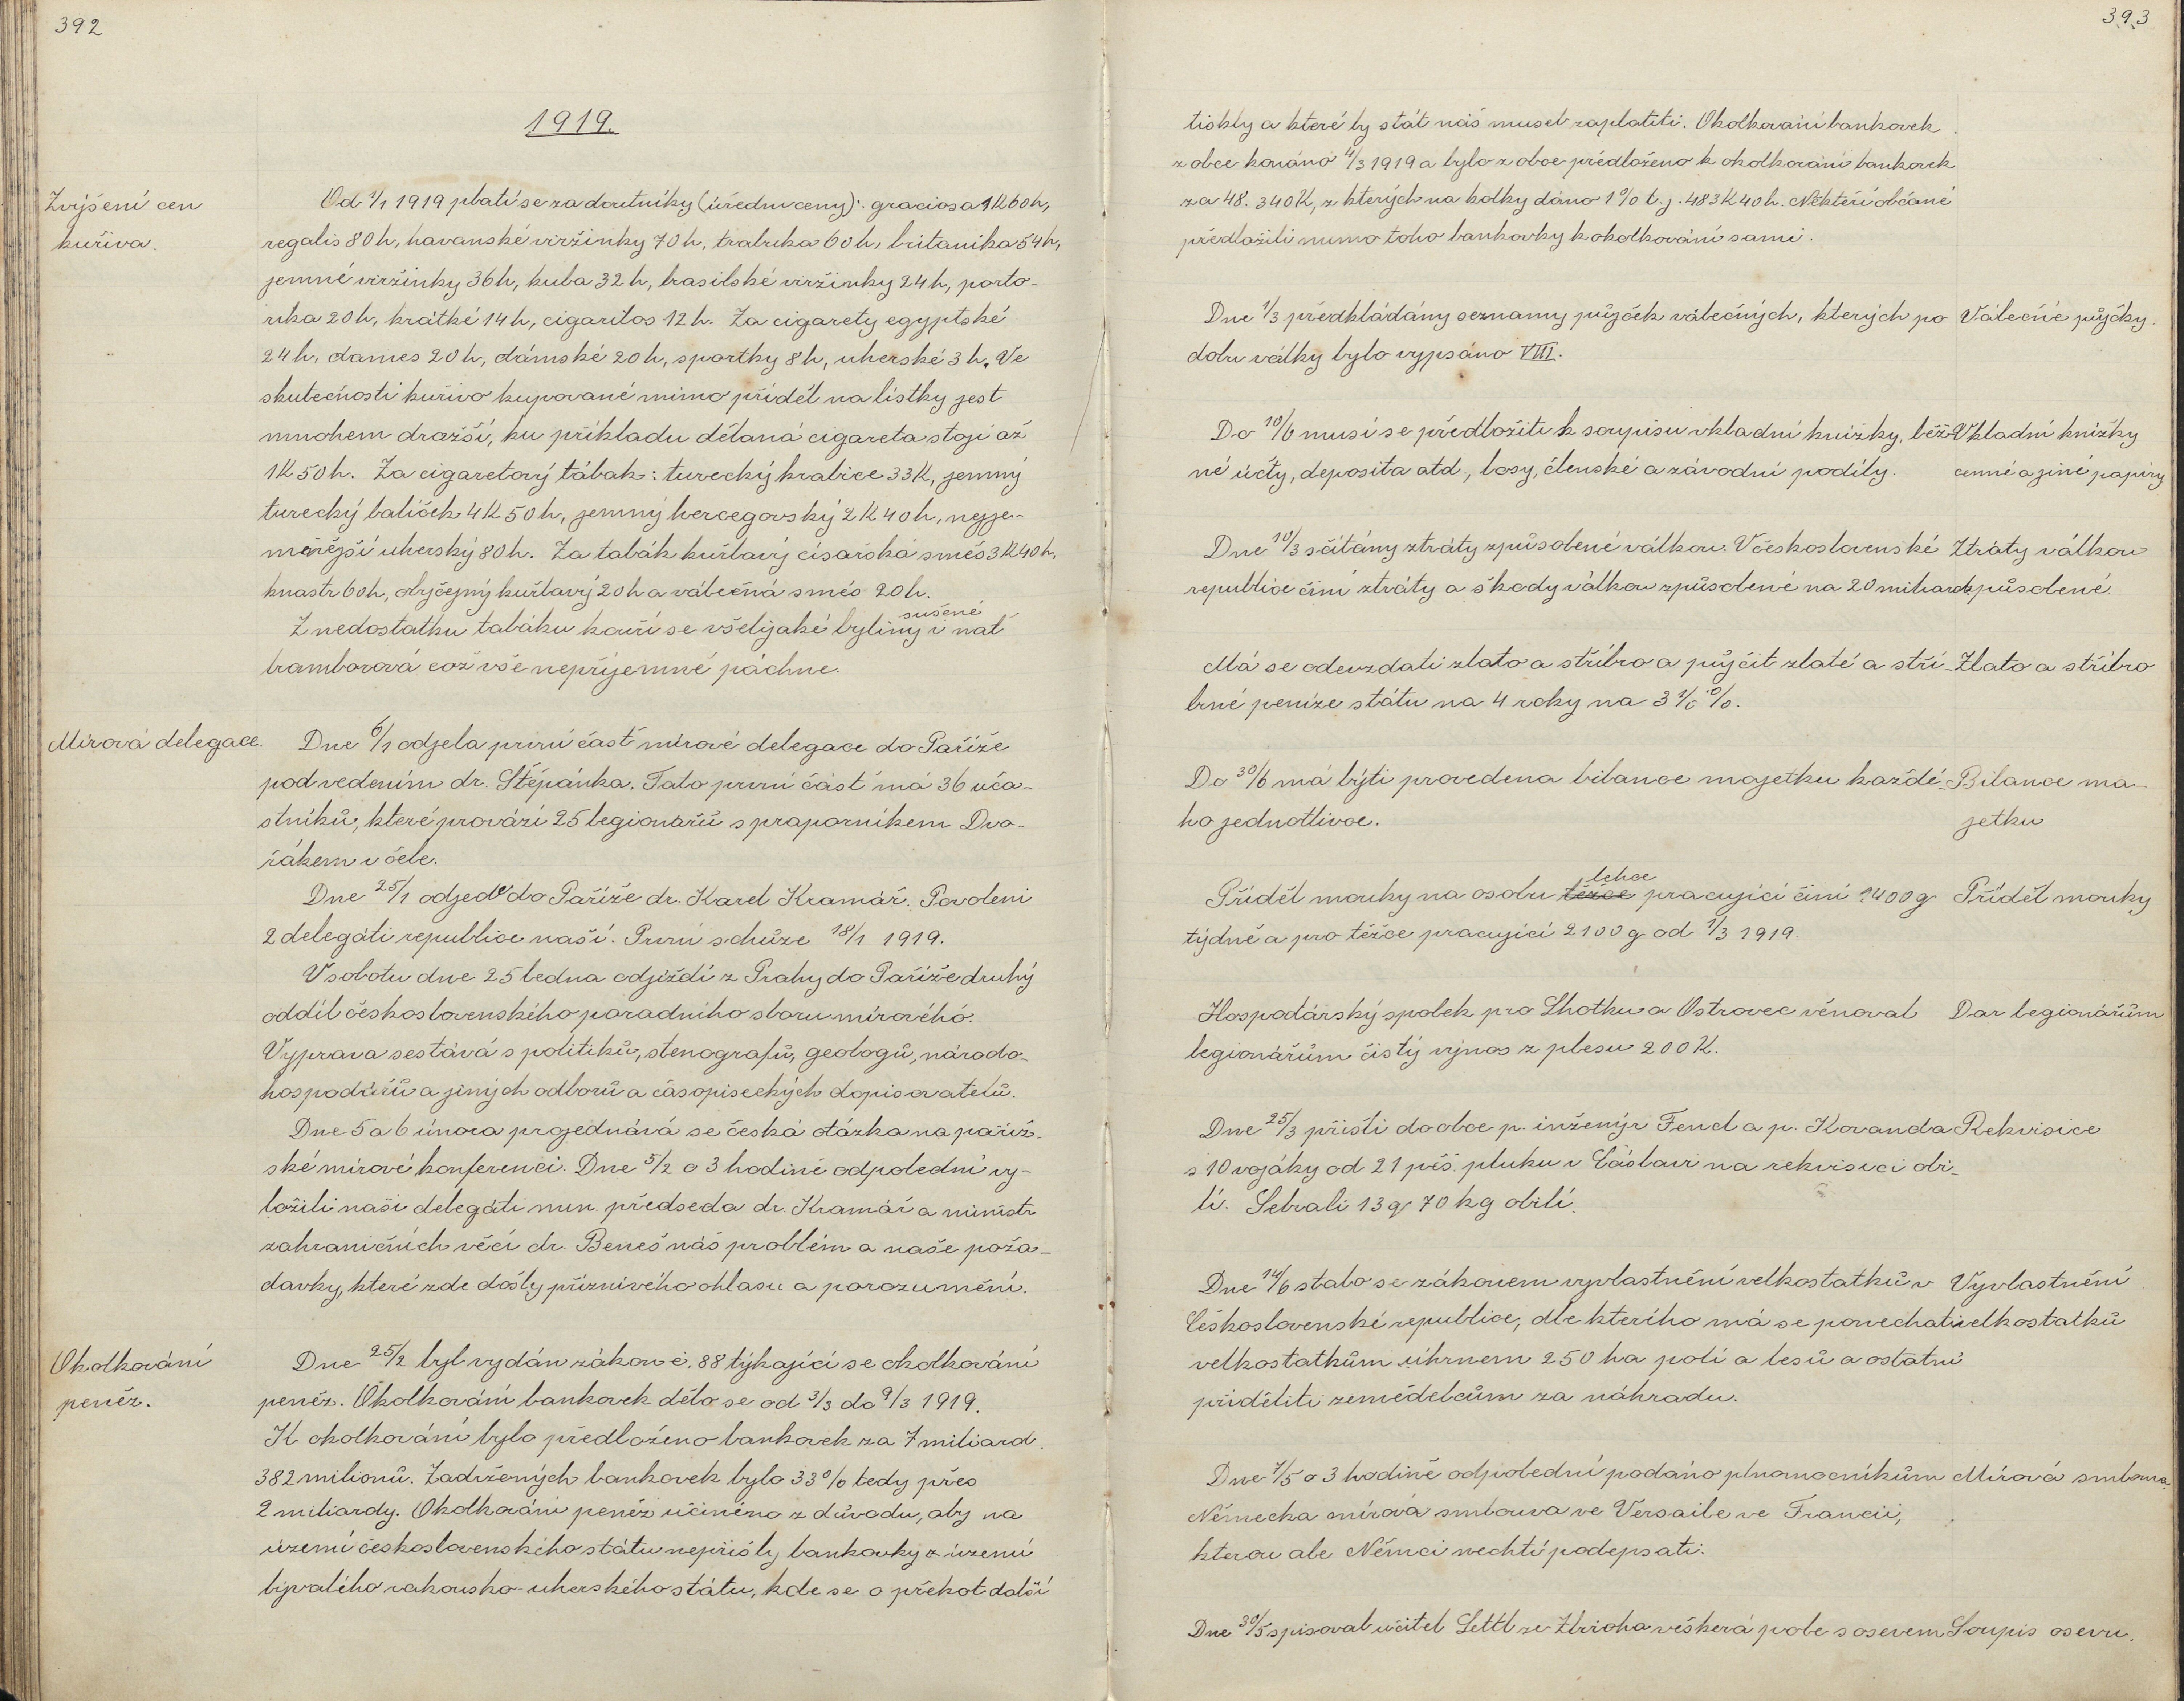 392
1919.
Zvýšení cen
kuřiva.
Od 1/1 1919 platí se za doutníky (úřední ceny): graciosa 1K60h,
regalis 80h, havanské viržinky 70h, trabuka 60h, britanika 54h,
jemné viržinky 36h, kuba 32h, brasilské viržinky 24h, porto-
rika 20h, krátké 14h, cigaritos 12h. Za cigarety egyptské
24h, dames 20h, dámské 20h, sportky 8h, uherské 3h. Ve
skutečnosti kuřivo kupované mimo příděl na lístky jest
mnohem dražší, ku příkladu dělaná cigareta stojí až
1K50h. Za cigaretový tábak: turecký krabice 33K, jemný
turecký balíček 4K50h, jemný hercegovský 2K40h, nejje-
mnější uherský 80h. Za tabák kuřlavý císařská směs 3K40h,
knastr 60h, obyčejný kuřlavý 20h a válečná směs 20h.
Z nedostatku tabáku kouří se všelijaké byliny i sušené nať
bramborová což vše nepříjemně páchne.
Mírová delegace.
Dne 6/1 odjela první část mírové delegace do Paříže
pod vedením dr. Štěpánka. Tato první část má 36 úča-
stníků, které provází 25 legionářů s praporníkem Dvo-
řákem v čele.
Dne 25/1 odjede do Paříže dr. Karel Kramář. Povoleni
2 delegáti republice naší. První schůze 18/1 1919.
V sobotu dne 25 ledna odjíždí z Prahy do Paříže druhý
oddíl československého poradního sboru mírového.
Výprava sestává s politiků, stenografů, geologů, národo-
hospodářů a jiných odborů a časopiseckých dopisovatelů.
Dne 5 a 6 února projednává se česká otázka na paříž-
ské mírové konferenci. Dne 5/2 o 3 hodině odpolední vy-
ložili naši delegáti min. předseda dr. Kramář a ministr
zahraničních věcí dr. Beneš náš problém a naše poža-
davky, které zde došly příznivého ohlasu a porozumění.
Okolkování
peněz.
Dne 25/2 byl vydán zákon č. 88 týkající se okolkování
peněz. Okolkování bankovek dělo se od 3/3 do 9/3 1919.
K okolkování bylo předloženo bankovek za 7 miliard
382 milionů. Zadržených bankovek bylo 33% tedy přes
2 miliardy. Okolkování peněz učiněno z důvodu, aby na
území československého státu nepřišly bankovky z území
bývalého rakousko-uherského státu, kde se o překot další
393
tiskly a které by stát náš musel zaplatiti. Okolkování bankovek
z obce konáno 4/3 1919 a bylo z obce předloženo k okolkování bankovek
za 48.340K, z kterých na kolky dáno 1% t.j. 483K40h. Někteří občané
předložili mimo toho bankovky k okolkování sami.
Dne 1/3 předkládány seznamy půjček válečných, kterých po
dobu války bylo vypsáno VIII.
Válečné půjčky.
Do 10/6 musí se předložiti k soupisu vkladní knížky, běž-
né účty, deposita atd., losy, členské a závodní podíly.
Vkladní knížky
cenné a jiné papíry
Dne 10/3 sčítány ztráty způsobené válkou. V československé
republice činí ztráty a škody válkou způsobené na 20 miliard.
Ztráty válkou
způsobené
Má se odevzdati zlato a stříbro a půjčit zlaté a stří-
brné peníze státu na 4 roky na 3 1/2 %.
Zlato a stříbro
Do 30/6 má býti provedena bilance majetku každé-
ho jednotlivce.
Bilance ma-
jetku
Příděl mouky na osobu těžce lehce pracující činí 1400g
týdně a pro těžce pracující 2100g od 1/3 1919.
Příděl mouky
Hospodářský spolek pro Lhotku a Ostrovec věnoval
legionářům čistý výnos z plesu 200K.
Dar legionářům
Dne 25/3 přišli do obce p. inženýr Fencl a p. Kovanda
s 10 vojáky od 21 pěš. pluku v Čáslavi na rekvisici obi-
lí. Sebrali 13q 70kg obilí.
Rekvisice
Dne 14/6 stalo se zákonem vyvlastnění velkostatků v
Československé republice, dle kterého má se ponechati
velkostatkům úhrnem 250 ha polí a lesů a ostatní
přiděliti zemědelcům za náhradu.
Vyvlastnění
velkostatků
Dne 7/5 o 3 hodině odpolední podáno plnomocníkům
Německa mírová smlouva ve Versaile ve Francii,
kterou ale Němci nechtí podepsati.
Mírová smlouva.
Dne 30/5 spisoval učitel Lettl ze Zbiroha veškerá pole s osevem
Soupis osevu.